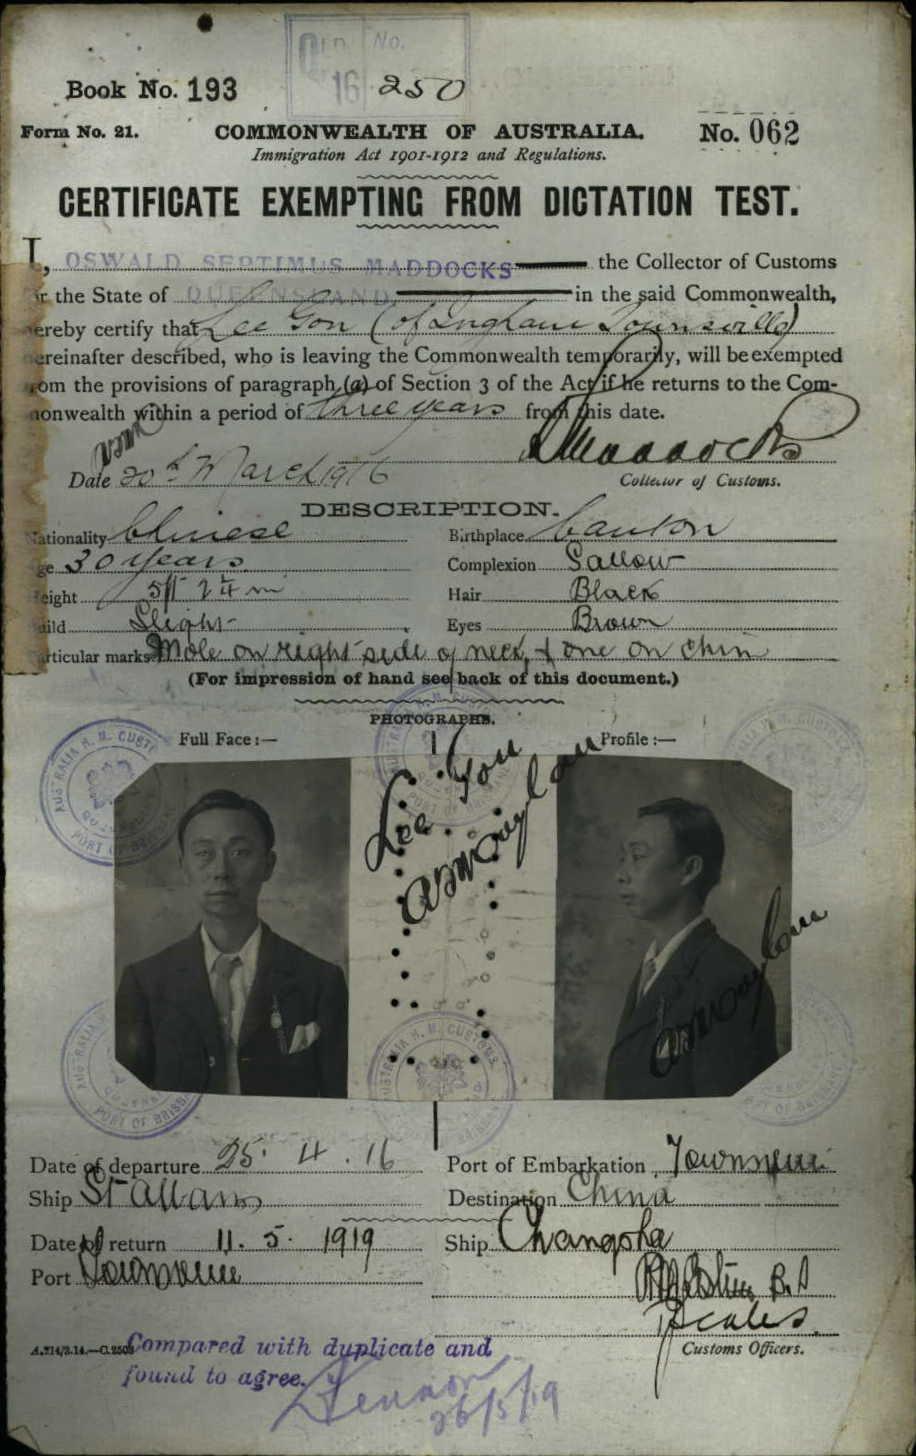 QLD No.
16 250
Book No. 193
Form No. 21. COMMONWEALTH OF AUSTRALIA. No. 062
Immigration Act 1901-1912 and Regulations.
CERTIFICATE EXEMPTING FROM DICTATION TEST.
I, OSWALD SEPTIMUS MADDOCKS the Collector of Customs
the State of QUEENSLAND in the said Commonwealth,
ereby certify that Lee Gon (of Ingham Townsville)
ereinafter described, who is leaving the Commonwealth temporarily, will be exempted
om the provisions of paragraph (a) of Section 3 of the Act if he returns to the Com-
monwealth within a period of three years from this date.
Date 20th March 1916
Collector of Customs.
DESCRIPTION.
Nationality Chinese Birthplace Canton
ge 30 years Complexion Sallow
eight Hair Black
uild Slight Eyes Brown
articular marks Mole on right side of neck, & one on chin
(For impression of hand see back of this document.)
PHOTOGRAPHS.
Full Face:— Profile:—
AUSTRALIA H. M. CUSTOMS PORT OF BRISBANE
Lee Gon
Date of departure 25. 4. 16 Port of Embarkation Townsville
Ship St Albans Destination China
Date of return 11. 5. 1919 Ship Changsha
Port Townsville
Customs Officers.
Compared with duplicate and
found to agree.
26/5/19